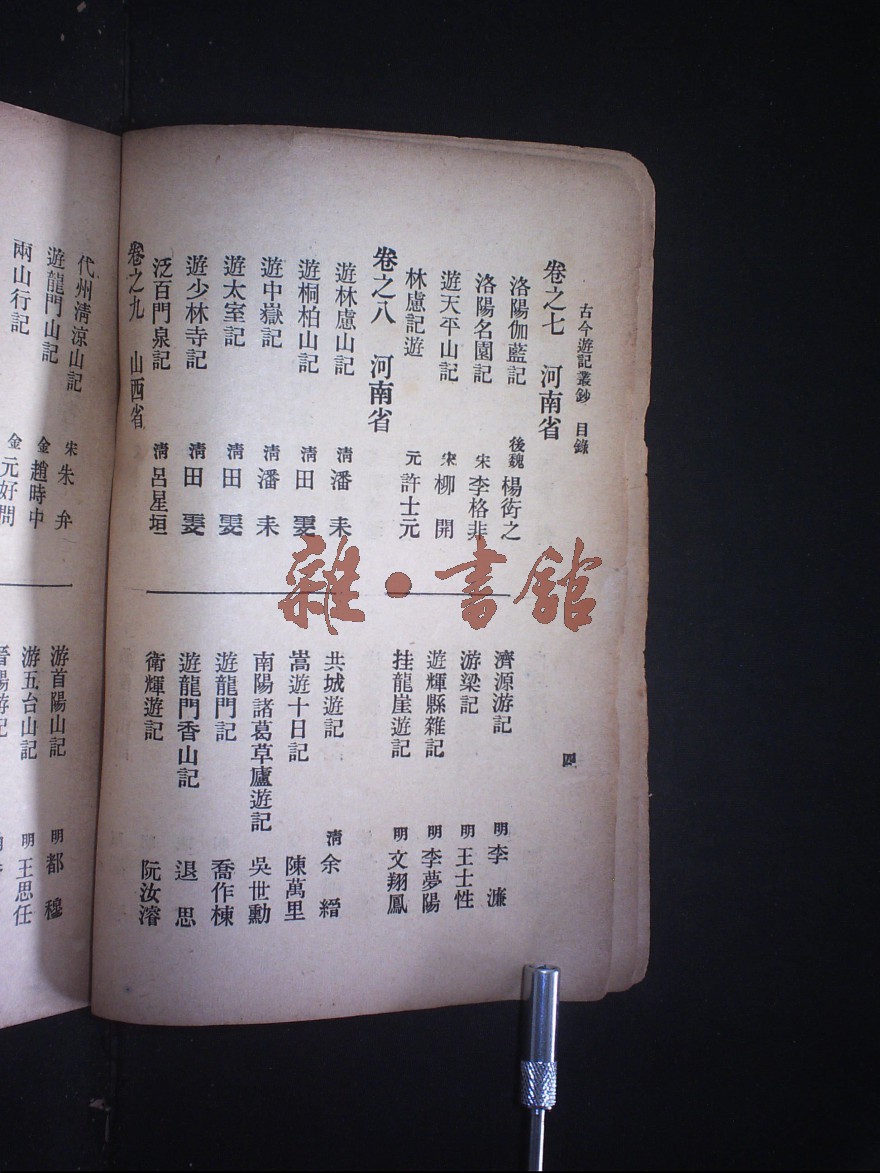 古今遊記叢鈔 目錄
四
卷之七 河南省
洛陽伽藍記 後魏 楊衒之
洛陽名園記 宋 李格非
遊天平山記 宋 柳開
林慮記遊 元 許士元
濟源游記 明 李濂
游梁記 明 王士性
遊輝縣雜記 明 李夢陽
挂龍崖遊記 明 文翔鳳
卷之八 河南省
遊林慮山記 清 潘耒
遊桐柏山記 清 田雯
遊中嶽記 清 潘耒
遊太室記 清 田雯
遊少林寺記 清 田雯
泛百門泉記 清 呂星垣
共城遊記 清 余縉
嵩遊十日記 陳萬里
南陽諸葛草廬遊記 吳世勳
遊龍門記 喬作棟
遊龍門香山記 退思
衛輝遊記 阮汝濬
卷之九 山西省
代州清涼山記 宋 朱弁
遊龍門山記 金 趙時中
兩山行記 金 元好問
游首陽山記 明 都穆
游五台山記 明 王思任
雜·書館